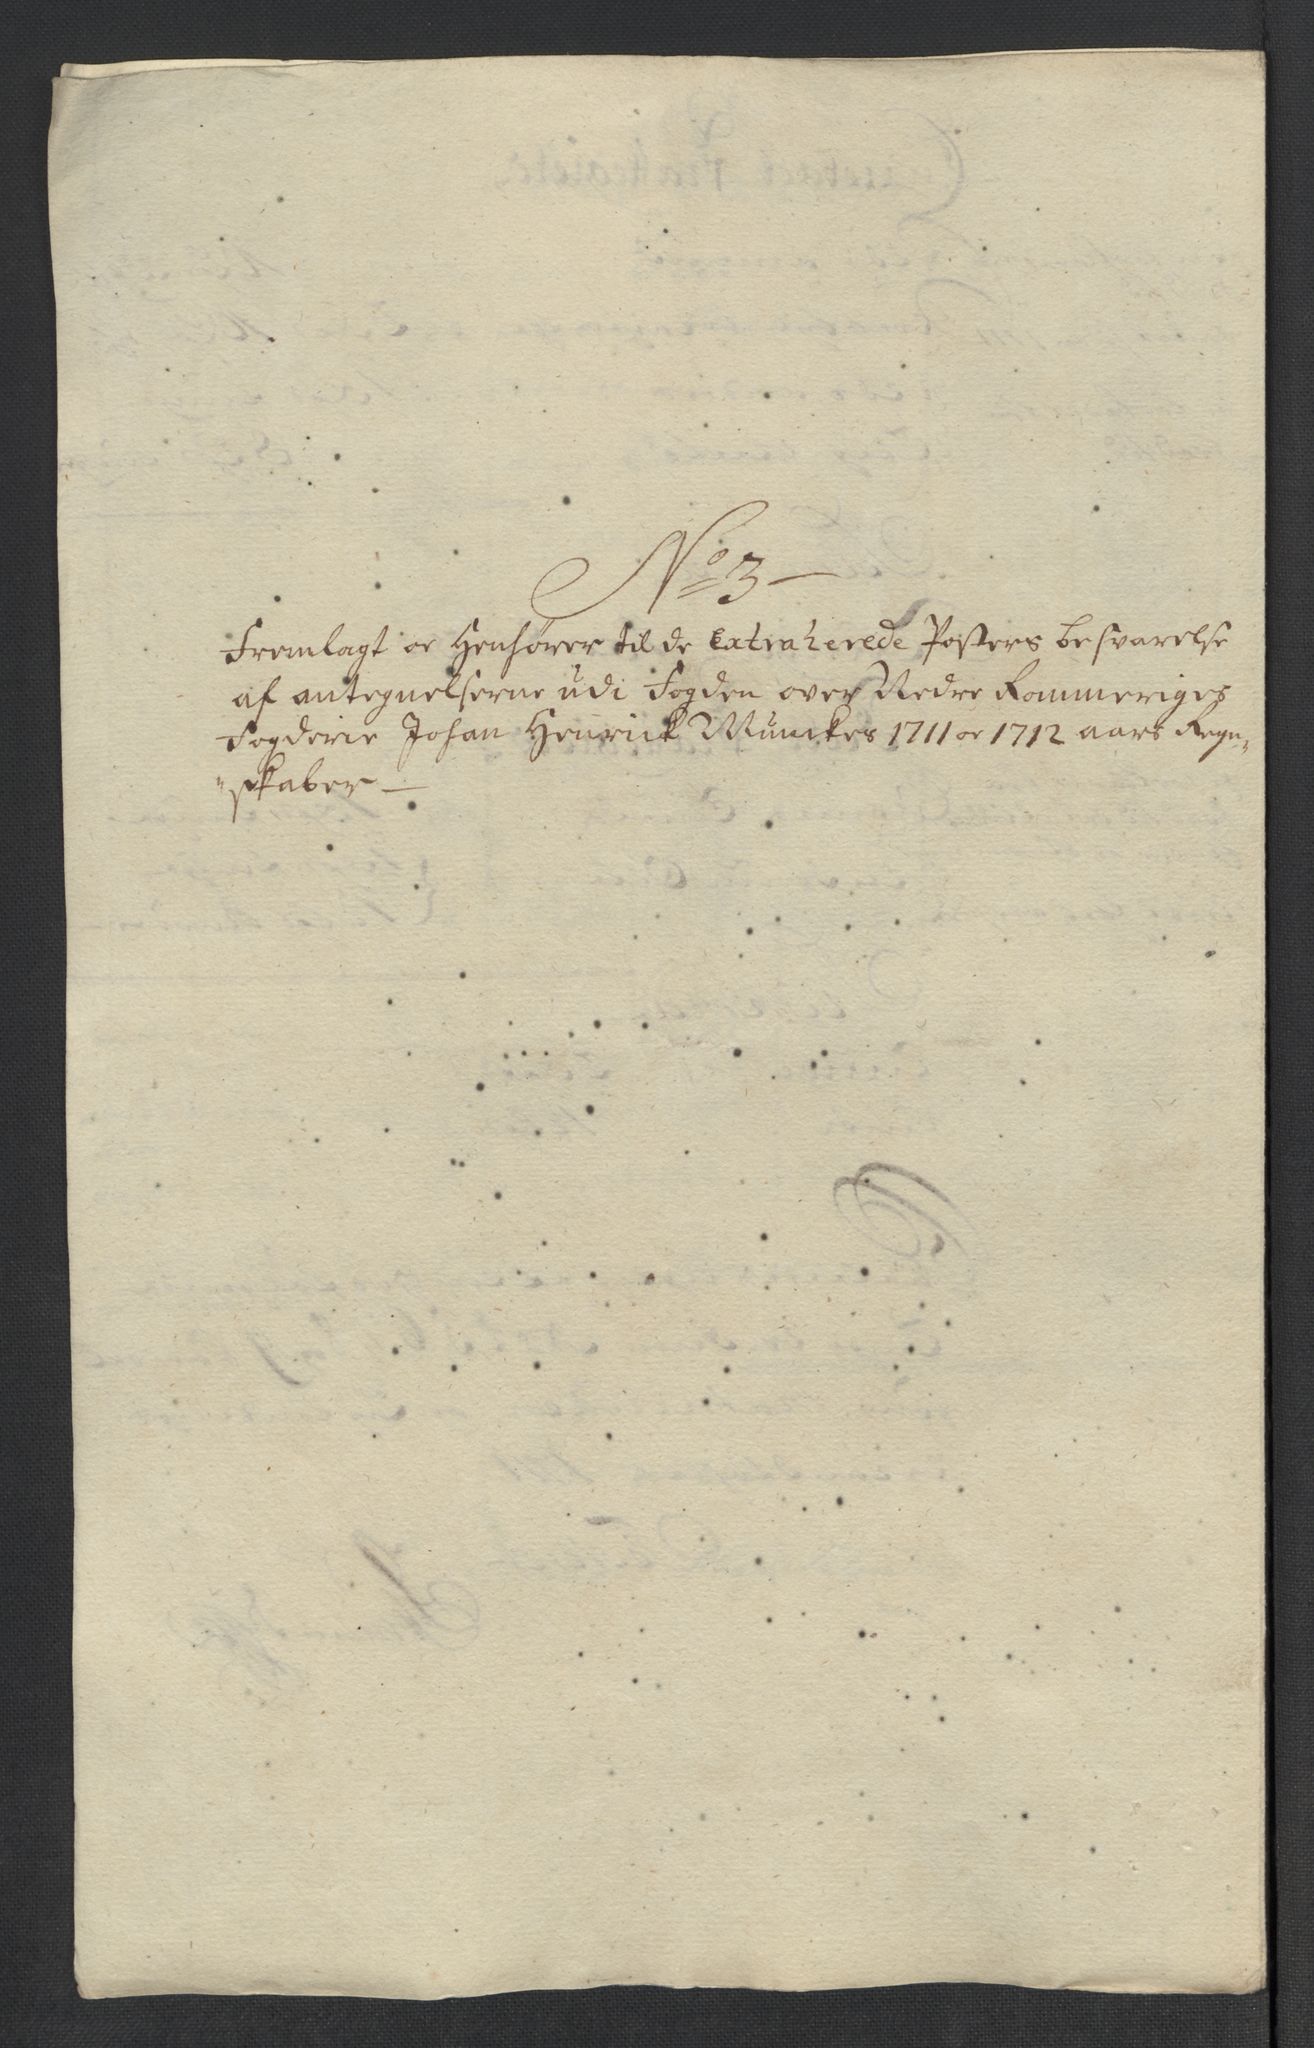 No 3
Fremlagt oc Henhører til de Extraherede Posters besvarelse
af antegnelserne udi Fogden over Nedre Rommeriges
Fogderie Johan Henrick Munckes 1711 oc 1712 aars Regn„
„skaber